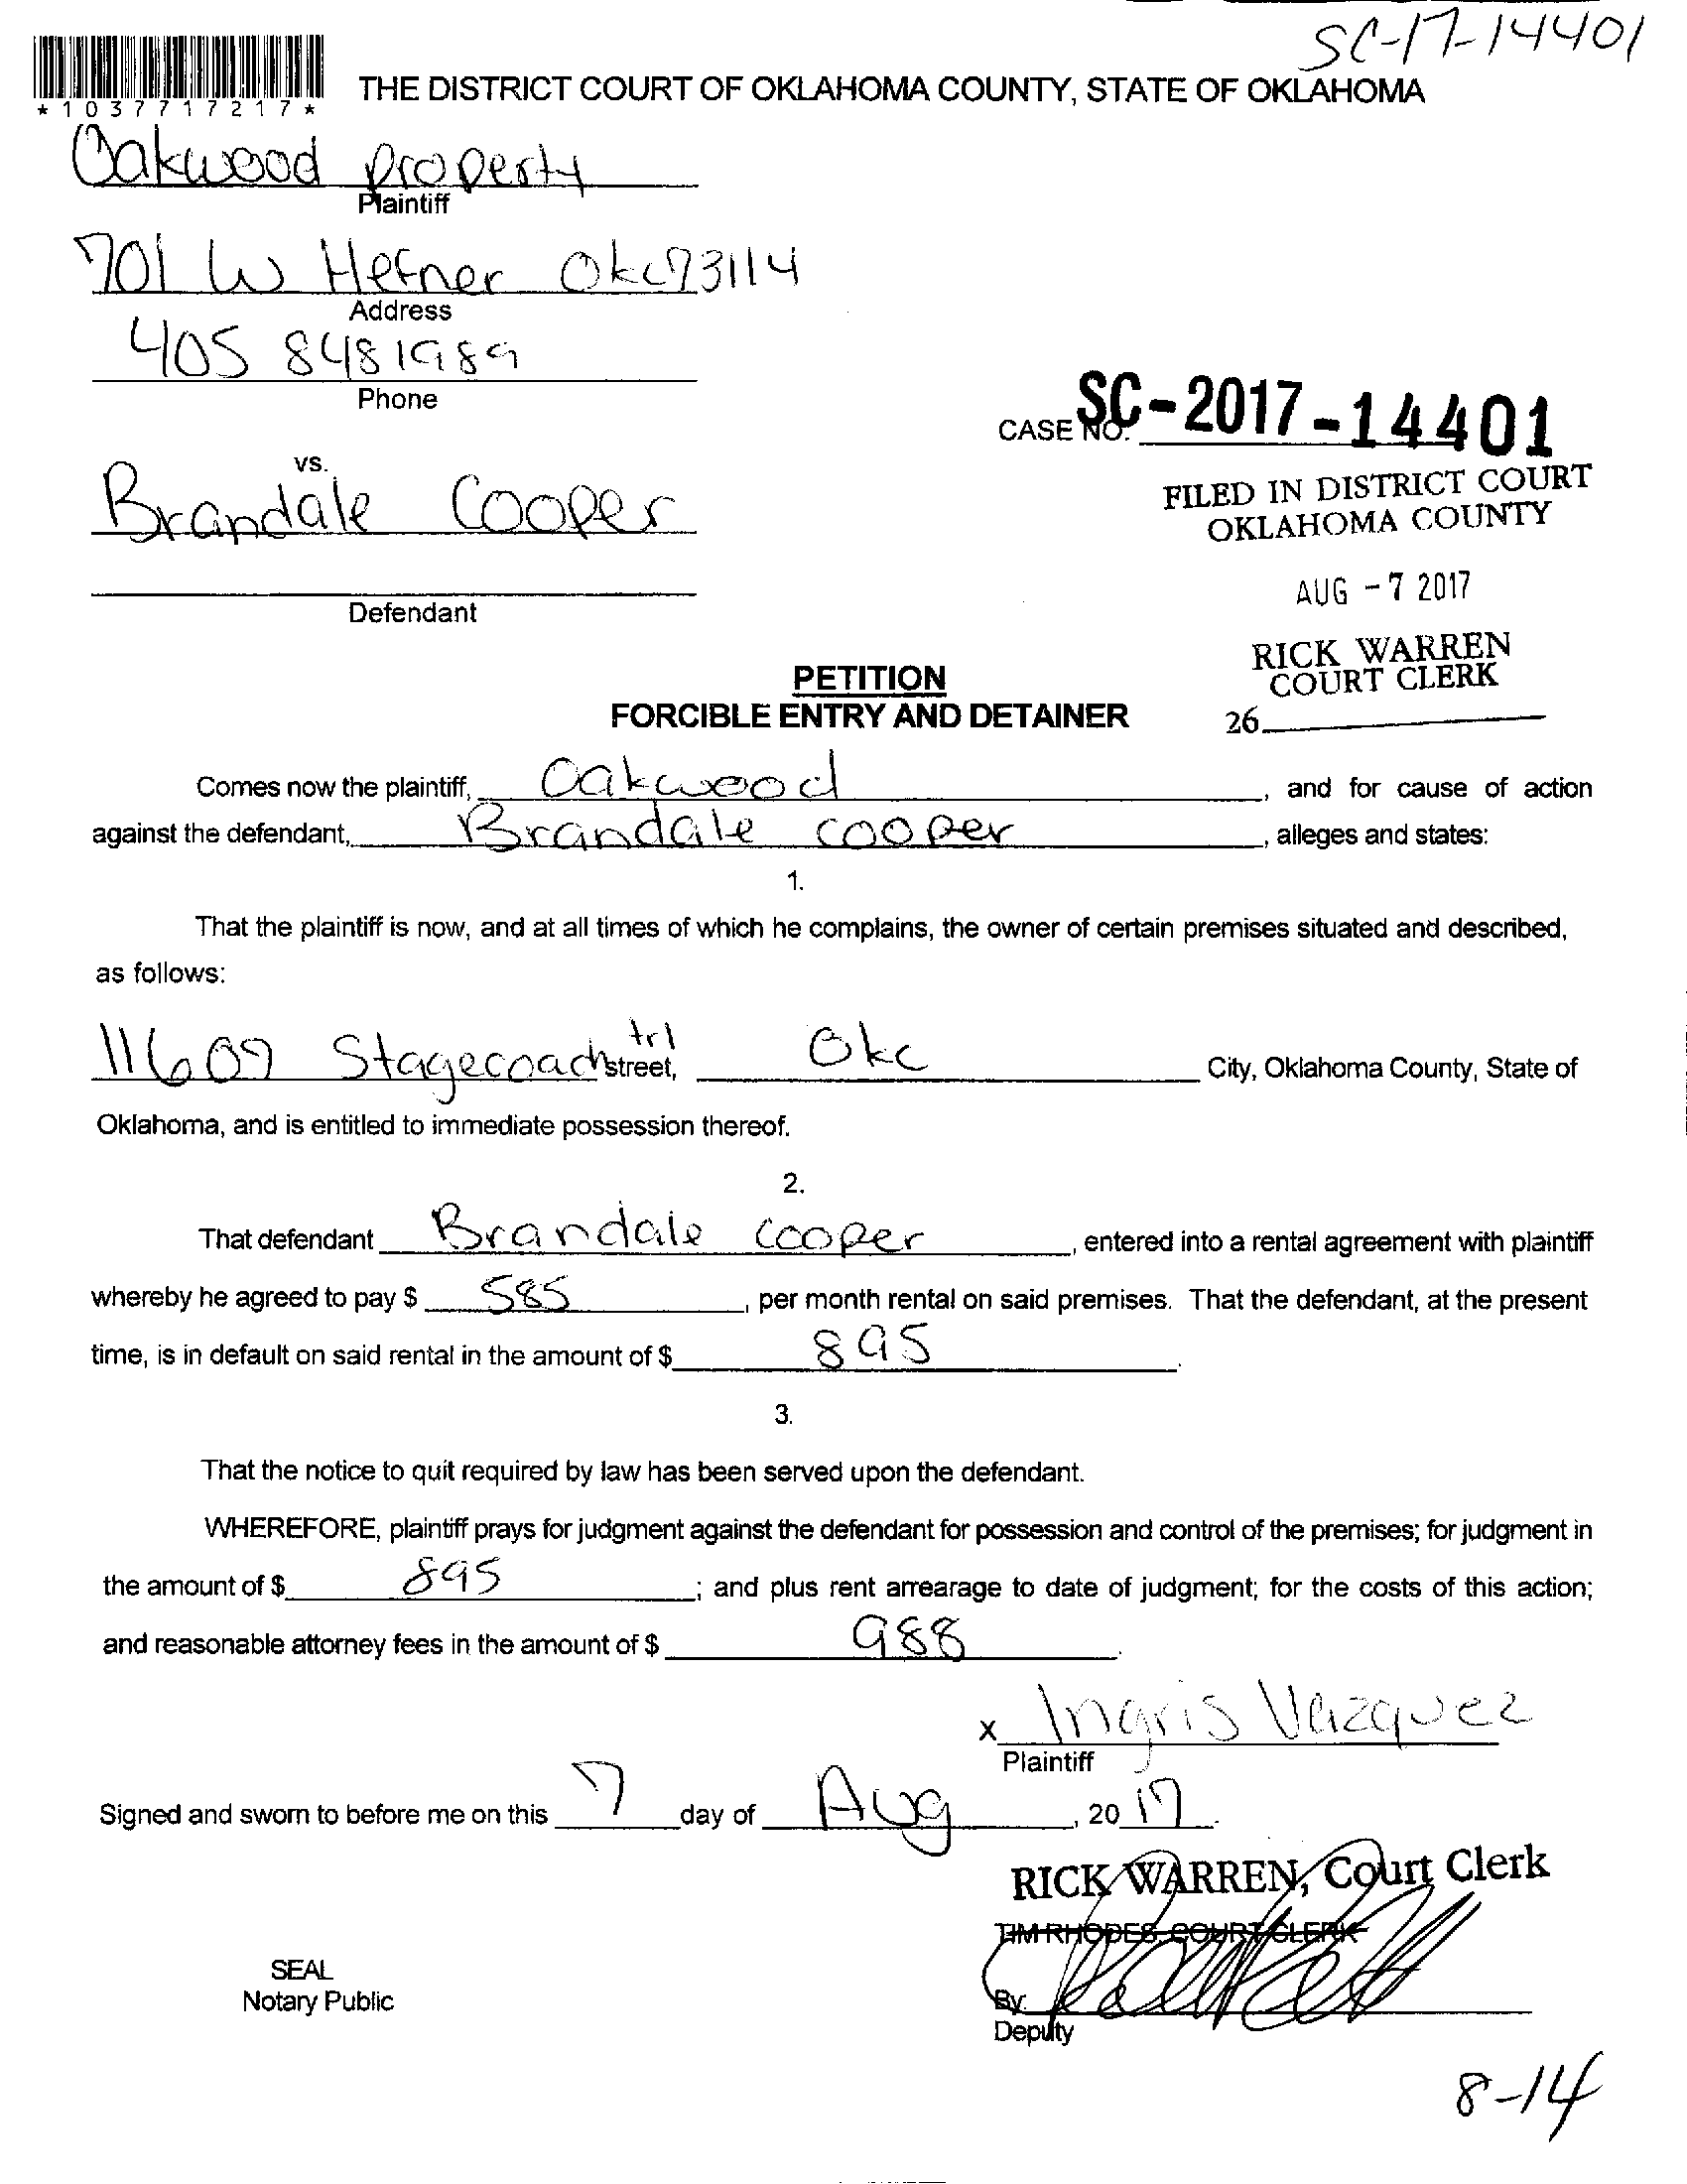 SC-17-14401
*1037717217*
THE DISTRICT COURT OF OKLAHOMA COUNTY, STATE OF OKLAHOMA
Oakwood property
Plaintiff
701 W Hefner Okc 73114
Address
405 848 1989
Phone
CASE NO. SC-2017-14401
vs.
FILED IN DISTRICT COURT
OKLAHOMA COUNTY
Brandale Cooper
AUG -7 2017
Defendant
RICK WARREN
COURT CLERK
PETITION
FORCIBLE ENTRY AND DETAINER
26
Comes now the plaintiff, Oakwood, and for cause of action
against the defendant, Brandale cooper, alleges and states:
1.
That the plaintiff is now, and at all times of which he complains, the owner of certain premises situated and described,
as follows:
11609 Stagecoach trl street, Okc City, Oklahoma County, State of
Oklahoma, and is entitled to immediate possession thereof.
2.
That defendant Brandale cooper, entered into a rental agreement with plaintiff
whereby he agreed to pay $ 585, per month rental on said premises. That the defendant, at the present
time, is in default on said rental in the amount of $ 895.
3.
That the notice to quit required by law has been served upon the defendant.
WHEREFORE, plaintiff prays for judgment against the defendant for possession and control of the premises; for judgment in
the amount of $ 895; and plus rent arrearage to date of judgment; for the costs of this action;
and reasonable attorney fees in the amount of $ 988.
x Ingris Vazquez
Plaintiff
Signed and sworn to before me on this 7 day of Aug, 20 17.
RICK WARREN, Court Clerk
TIM RHODES, COURT CLERK
SEAL
Notary Public
By:
Deputy
8-14